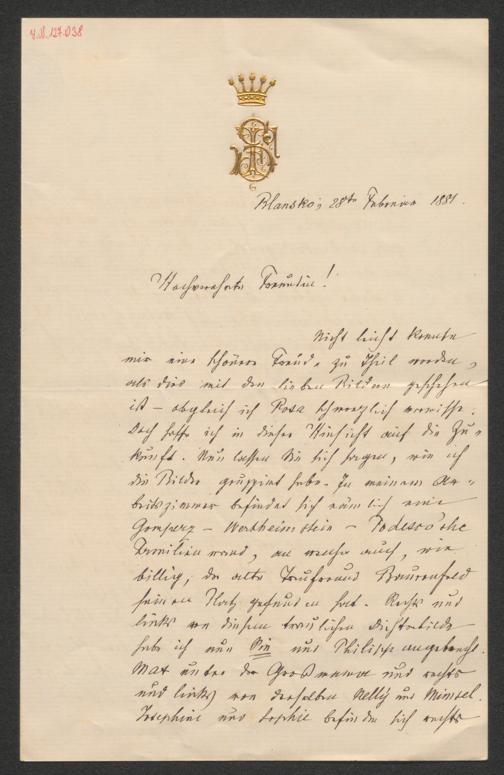 H.I.N. 127.038
Blansko, 28te Februar 1881.
Hochverehrte Freundin!
Nicht leicht konnte
mir eine schönere Freude zu Theil werden,
als dies mit den lieben Bildern geschehen
ist – obgleich ich Rosa schmerzlich vermisse.
Doch hoffe ich in dieser Hinsicht auf die Zu=
kunft. Nun lassen Sie sich sagen, wie ich
die Bilder gruppirt habe. In meinem Ar=
beitszimmer befindet sich nämlich eine
Gomperz – Wertheimstein – Todesco'sche
Familienwand, an welcher auch, wie
billig, der alte Bauernfeld
seinen Platz gefunden hat. Rechts und
links von diesem traulichen Dichterbilde
habe ich nun Sie und Philipp angebracht.
Max unter der Großmama und rechts
und links von derselben Nelly und Mimsel.
Josephine und Sophie befinden sich rechts